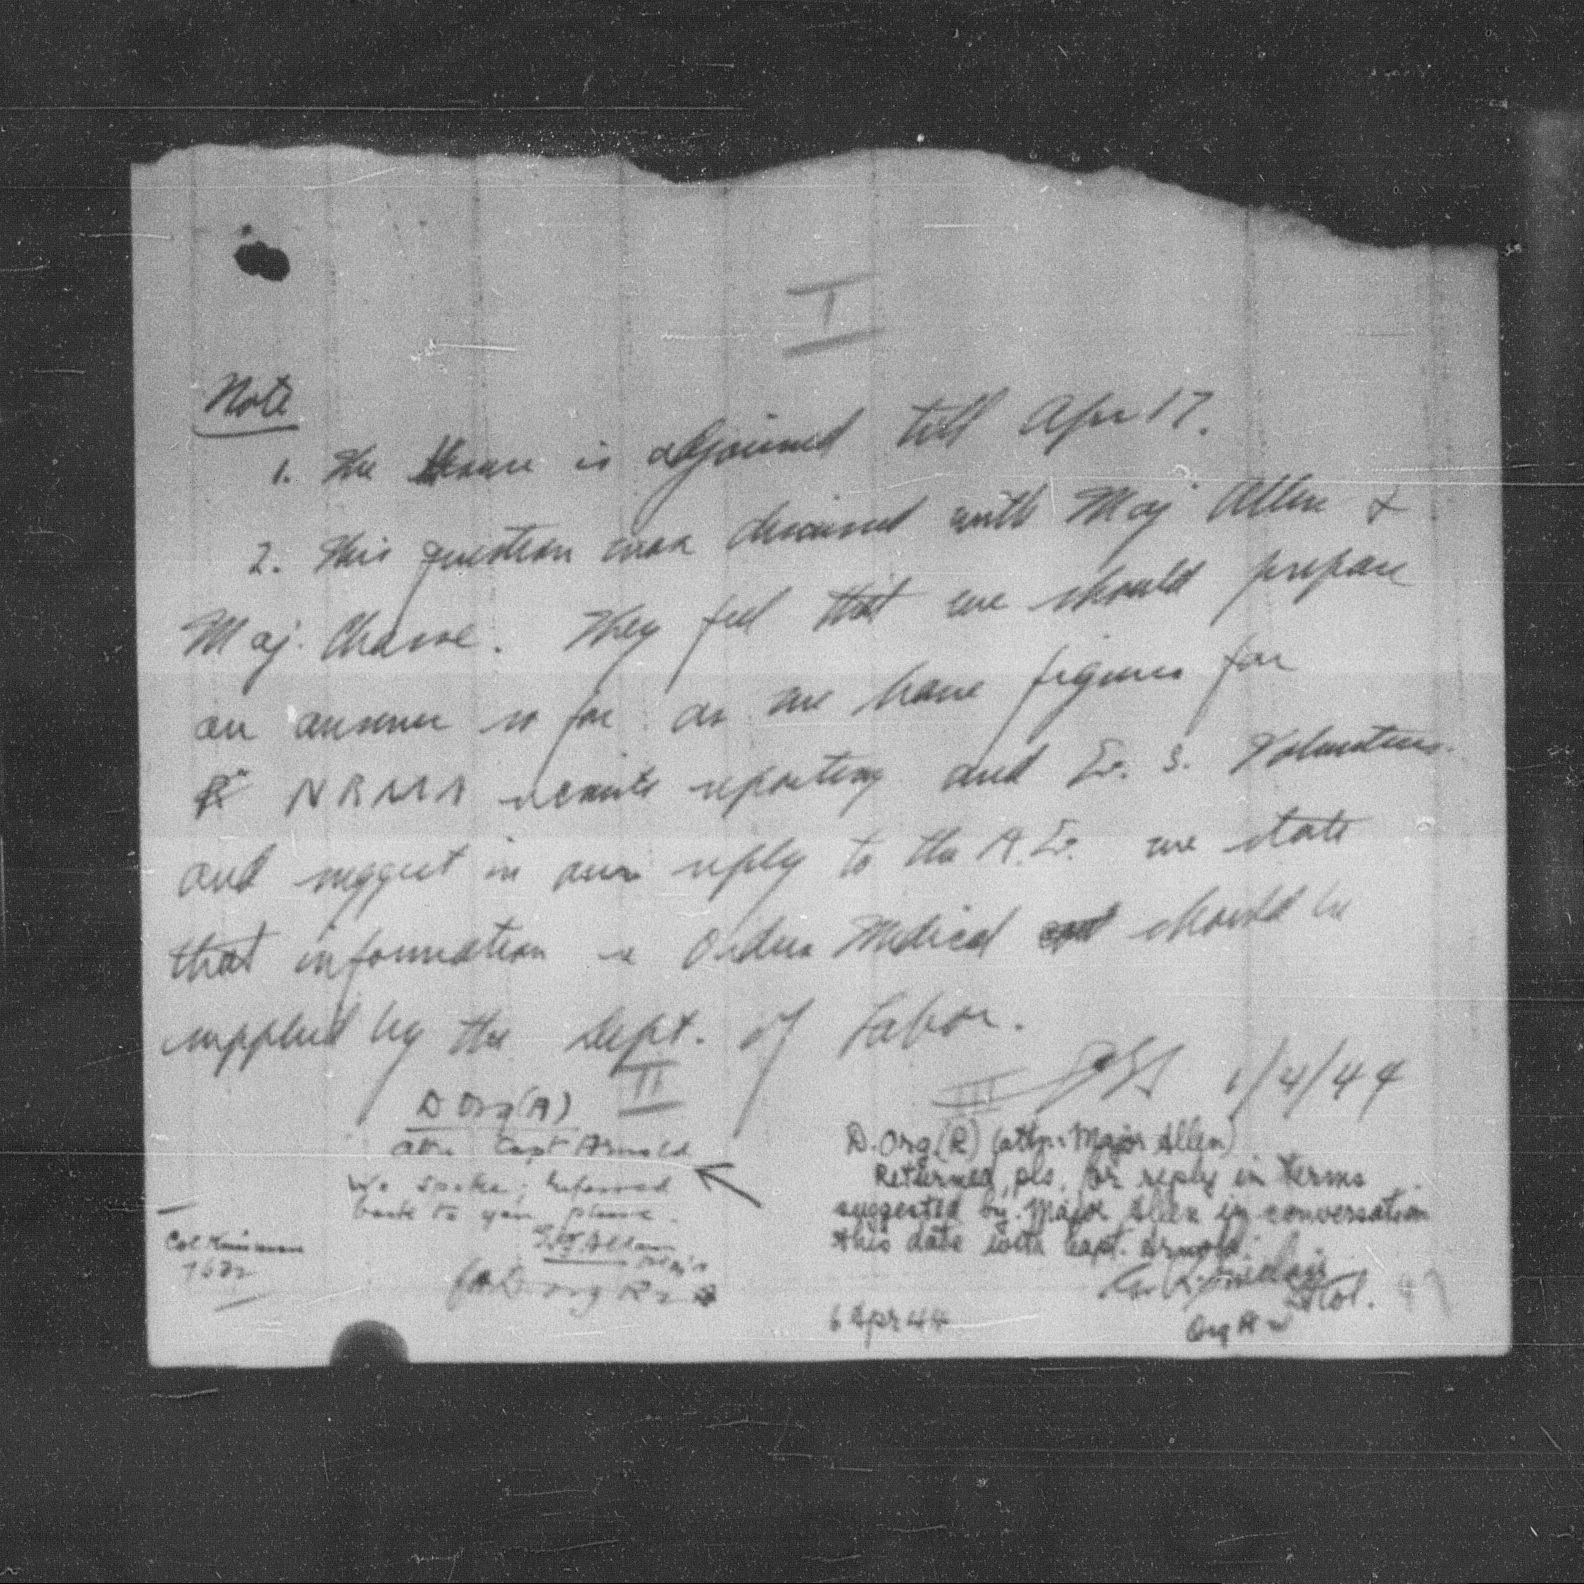 I
Note
1. The House is adjourned till Apr 17.
2. This question was discussed with Maj Allen &
Maj. Chasse. They feel that we should prepare
an answer so far as we have figures for
NRMA recruits reporting and G. S. Volunteers
and suggest in our reply to the A.G. we state
that information re Orders Medical should be
supplied by the Dept. of Labor.
1/4/44
II
D Org(A)
attn Capt Arnold
We spoke; referred
back to you please.
Allen Maj
for D Org R
Col
7622
III
D. Org(R) (attn: Major Allen)
Returned, pls, for reply in terms
suggested by Major Allen in conversation
this date with Capt. Arnold.
Sinclair
Lt Col.
Org A
6 Apr 44